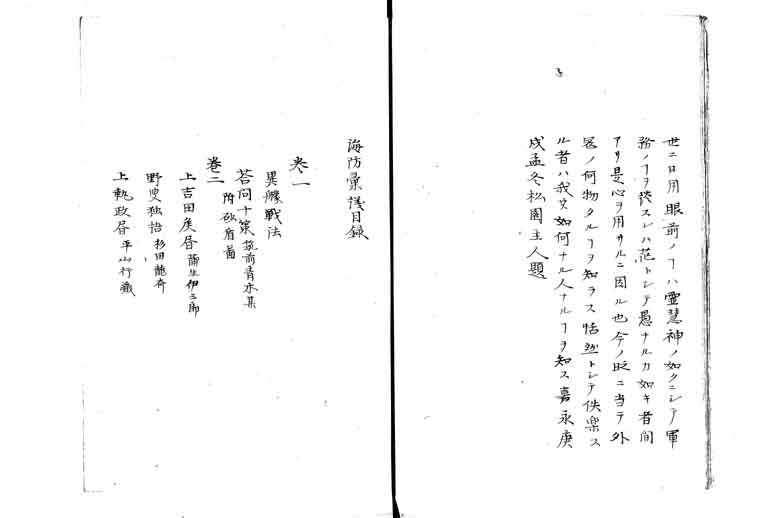 世ニ日用眼前ノヿハ霊慧神ノ如クニシテ軍
務ノヿヲ談スレハ茫トシテ愚ナルカ如キ者間
アリ是心ヲ用サルニ因ル也今ノ時ニ当テ外
冦ノ何物タルヿヲ知ラス恬然トシテ佚楽ス
ル者ハ我其如何ナル人ナルヿヲ知ス嘉永庚
戌孟冬松園主人題
海防彙議目録
巻一
異艟戦法
答問十策 筑前青木某
附 砲眉図
巻二
上吉田矦書 蒲生伊三郎
野叟独語 杉田
上執政書 平山行蔵